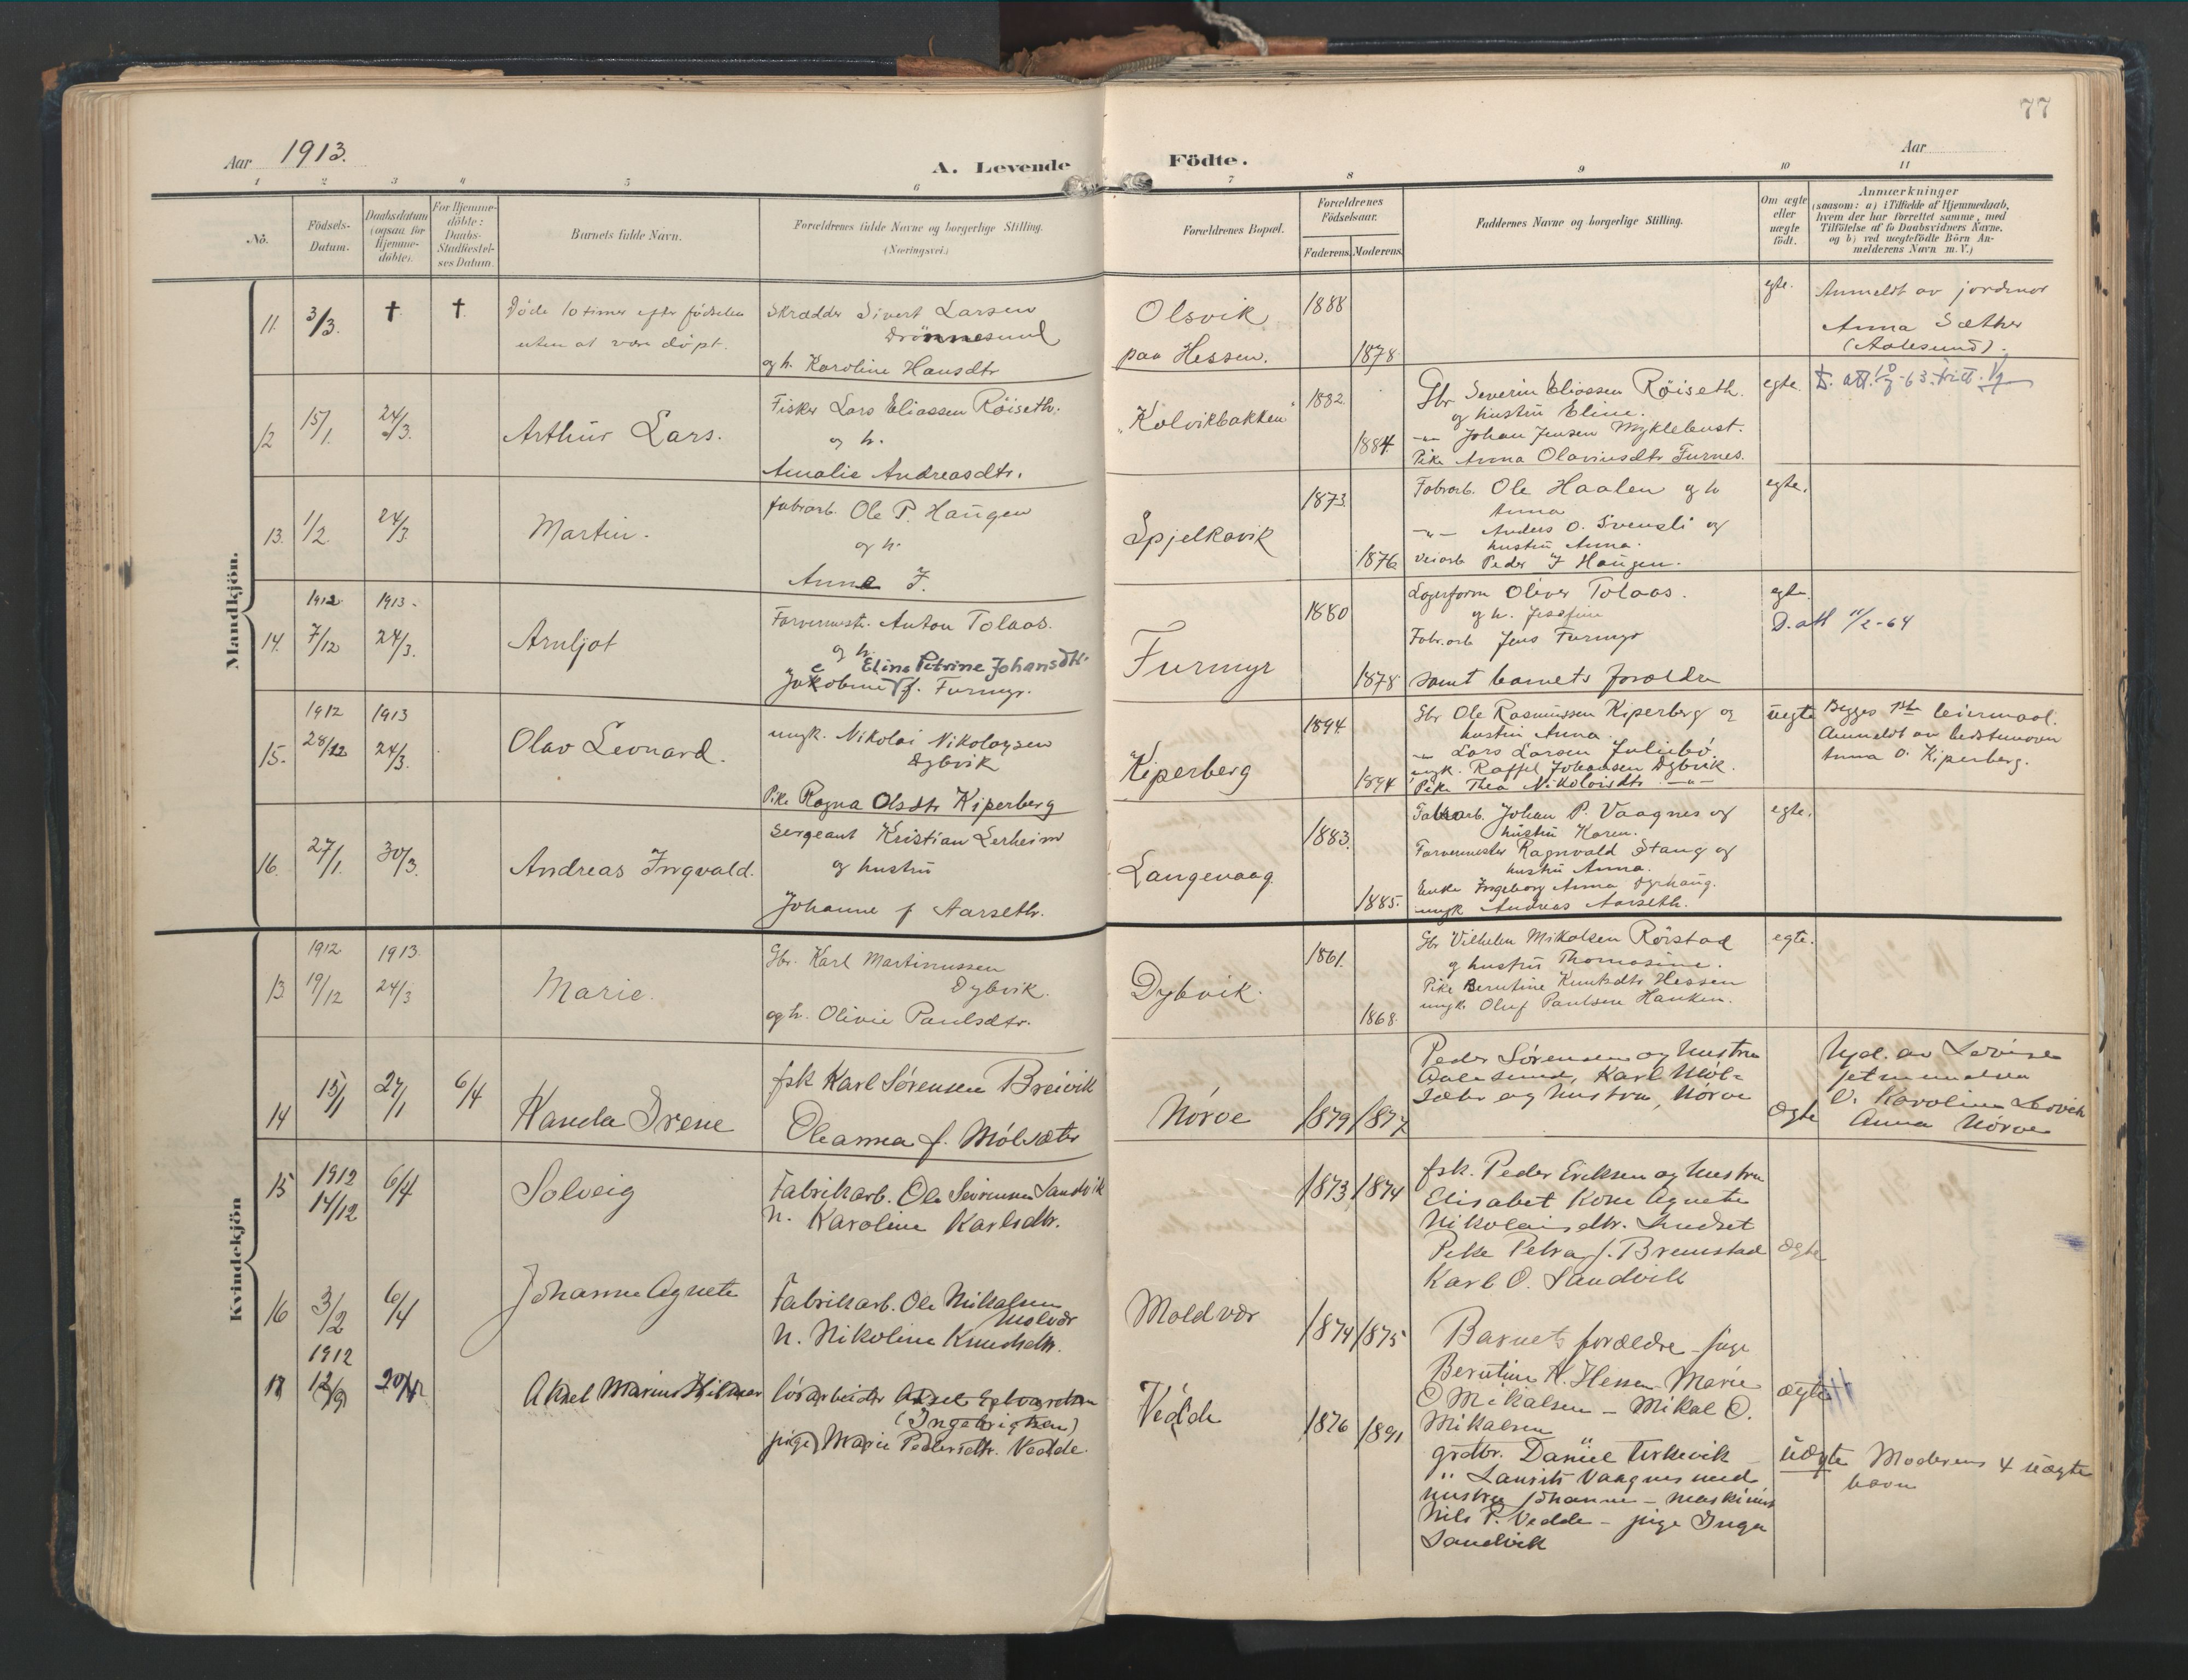 77
Aar 1913.
A. Levende Födte.
Aar
1 2 3 4 5 6 7 8 9 10 11
No.
Födsels-
Datum.
Daabsdatum
(ogsaa for
Hjemme-
döbte).
For Hjemme-
döbte:
Daabs-
Stadfæstel-
ses Datum.
Barnets fulde Navn.
Forældrenes fulde Navne og borgerlige Stilling.
(Næringsvei.)
Forældrenes Bopæl.
Forældrenes
Födselsaar.
Faderens.
Moderens.
Faddernes Navne og borgerlige Stilling.
Om ægte
eller
uægte
födt.
Anmærkninger
(saasom: a) i Tilfælde af Hjemmedaab,
hvem der har forrettet samme, med
Tilföielse af to Daabsvidners Navne,
og b) ved uægtefödte Börn An-
melderens Navn m. V.)
Mandkjön.
11. 3/3. † †.
Döde 10 timer efter födselen
uten at være döpt.
Skrædder Sivert Larsen
Drönnesund
og h. Karoline Hansdtr
Olsvik
paa Hessen.
1888
1878.
egte.
Anmeldt av jordmor
Anna Sæther
(Aalesund).
12 15/1. 24/3.
Arthur Lars.
Fisker Lars Eliassen Röiseth.
og h.
Amalie Andreasdtr.
"Kolvikbakken"
1882.
1884.
Gbr Severin Eliassen Röiseth.
og hustru Eline.
-"- Johan Jensen Myklebust.
Pike Anna Olaviusdtr Furnes.
egte.
13. 1/2. 24/3.
Martin.
fabrarb. Ole P. Haugen
og h.
Anne J.
Spjelkavik
1873.
1876
Fabrarb. Ole Haalen og h
Anna
-"- Anders O. Svensli og
hustru Anna.
Veiarb Peder J Haugen.
egte.
14. 1912 7/12 1913. 24/3.
Arnljot
Farvermestr. Anton Tolaas.
og h.
Elina Petrine Johansdtr.
Jakobine f. Furmyr.
Furmyr
1880
1878
Lagerform Oliver Tolaas.
og h. Josefine
Fabr.arb Jens Furmyr
samt barnets forældre
egte.
D.att 11/2-64
15. 1912 28/12 1913 24/3.
Olav Leonard.
ungk. Nikolai Nikolaysen
Dybvik
Pike Ragna Olsdtr Kiperberg
Kiperberg
1894.
1894
Gbr Ole Rasmussen Kiperberg og
hustru Anna.
-"- Lars Larsen Juliebö.
ungk. Raffel Johansen Dybvik.
Pike Thea Nikolaisdtr -"-
uegte
Begges 1ste leiermaal.
Anmeldt av bedstemoren
Anna O. Kiperberg.
16. 27/1. 30/3.
Andreas Ingvald.
Sergeant Kristian Lerheim
og hustru
Johanne f Aarseth.
Langevaag
1883.
1885.
Fabrarb. Johan P. Vaagnes og
hustru Karen.
Farvermester Ragnvald Stang og
hustru Anna.
Enke Ingeborg Anna Dyrhaug.
ungk Andreas Aarseth.
egte.
Kvindekjön
13 1912 19/12 1913 24/3
Marie.
Gbr. Karl Martinussen
Dybvik.
og h. Olivie Paulsdtr.
Dybvik.
1861.
1868.
Gbr Vilhelm Mikalsen Rörstad
og hustru Thomasine.
Pike Berntine Knutsdtr Hessen
ungk. Oluf Paulsen Hanken.
egte.
14 15/1 27/1 6/4
Wanda Irene
fsk Karl Sörensen Breivik
Oleanna f. Mölsæter
Nörve
1879
1877
Peder Sörensen og hustru
Aalesund, Karl Möl-
sæter og hustru, Nörve
Ægte
Hjd. av Lovise
O. Karoline
Anna Nörve
15 1912 14/12 6/4
Solveig
Fabrikarb. Ole Severinsen Sandvik
h. Karoline Karlsdtr.
1873
1874
fsk. Peder Eriksen og hustru
Elisabet Kone Agnete
Nikolaisdtr.
Pike Petra f. Bremstad
Karl O. Sandvik
Ægte
16 3/2 6/4
Johanne Agnete
Fabrikarb. Ole Mikalsen
Molvær
h. Nikoline Knudsdtr.
Moldvær
1874
1875
Barnets forældre - pige
Berntine K. Hessen - Marie
O Mikalsen - Mikal O.
Mikalsen
ægte
17 1912 12/9 20/4
Aksel Marius Hilmar
lösarbeider Aksel Edvardsen
(Ingebrigtsen)
pige Marie Pedersdtr. Vedde.
Vedde
1876
1891
grdbr. Daniel Kirkevik
" Laurits Vaagnes med
hustru Johanne - maskinist
Nils P. Vedde - pige Inga
Sandvik
uægte
Moderens 4 uægte
barn